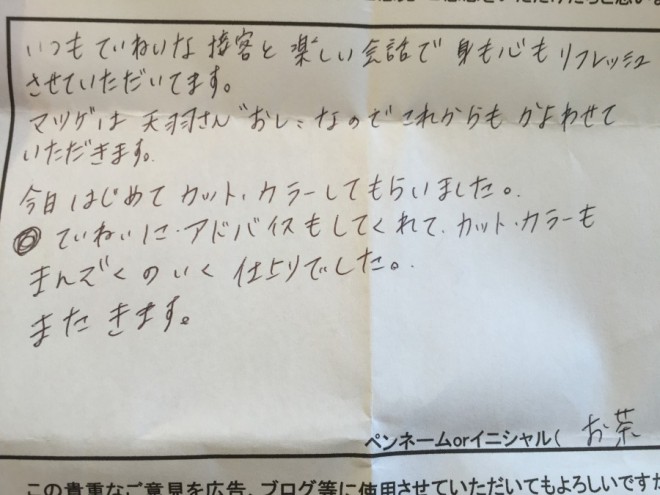 いつもていねいな接客と楽しい会話で身も心もリフレッシュ
させていただいてます。
マツゲは天羽さん"おし"なのでこれからもかよわせて
いただきます。
今日はじめてカット、カラーしてもらいました。
ていねいに・アドバイスもしてくれて、カット・カラーも
まんぞくのいく仕上りでした。
またきます。
ペンネームorイニシャル( お茶
この貴重なご意見を広告、ブログ等に使用させていただいてもよろしいですか